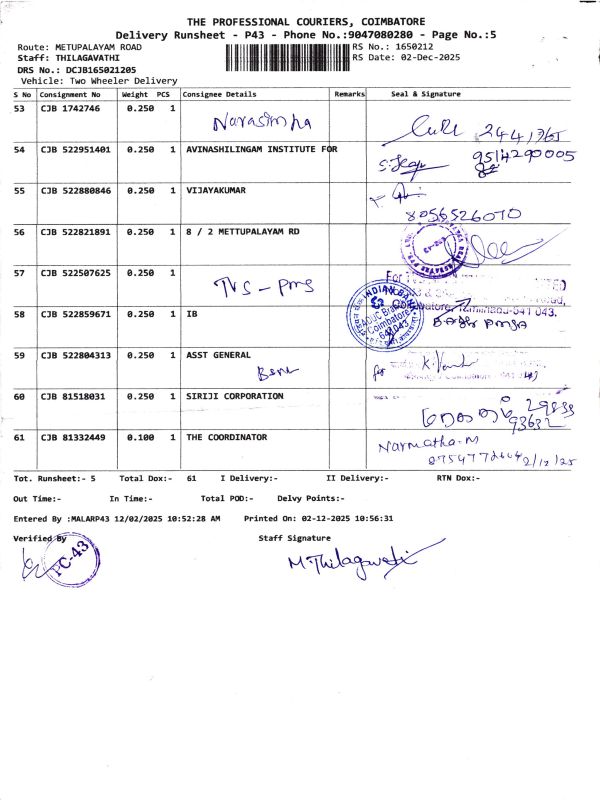 THE PROFESSIONAL COURIERS, COIMBATORE
Delivery Runsheet - P43 - Phone No.:9047080280 - Page No.:5
Route: METUPALAYAM ROAD RS No.: 1650212
Staff: THILAGAVATHI RS Date: 02-Dec-2025
DRS No.: DCJB165021205
Vehicle: Two Wheeler Delivery
S No Consignment No Weight PCS Consignee Details Remarks Seal & Signature
53 CJB 1742746 0.250 1 Narasimha
54 CJB 522951401 0.250 1 AVINASHILINGAM INSTITUTE FOR 9514290005
55 CJB 522880846 0.250 1 VIJAYAKUMAR
8056526070
56 CJB 522821891 0.250 1 8 / 2 METTUPALAYAM RD
57 CJB 522507625 0.250 1 TVS - PMS
58 CJB 522859671 0.250 1 IB
INDIAN BANK
Coimbatore
641043
59 CJB 522804313 0.250 1 ASST GENERAL
for
60 CJB 81518031 0.250 1 SIRIJI CORPORATION
61 CJB 81332449 0.100 1 THE COORDINATOR Narmatha.M
2/12/25
Tot. Runsheet:- 5 Total Dox:- 61 I Delivery:- II Delivery:- RTN Dox:-
Out Time:- In Time:- Total POD:- Delvy Points:-
Entered By :MALARP43 12/02/2025 10:52:28 AM Printed On: 02-12-2025 10:56:31
Verified By Staff Signature
PC-43
M.Thilagavathi